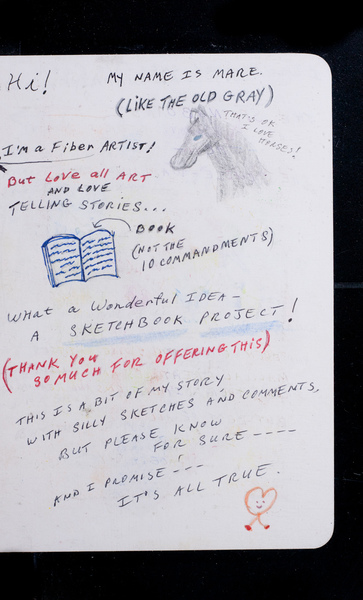 Hi!
MY NAME IS MARE.
(LIKE THE OLD GRAY)
THAT'S OK
I LOVE
HORSES!
I'm a Fiber ARTIST!
But Love all ART
AND LOVE
TELLING STORIES...
BOOK
(NOT THE
10 COMMANDMENTS)
WHAT a Wonderful IDEA -
A SKETCHBOOK PROJECT!
(THANK YOU
SO MUCH FOR OFFERING THIS)
THIS IS A BIT OF MY STORY
WITH SILLY SKETCHES AND COMMENTS,
BUT PLEASE KNOW
FOR SURE ----
AND I PROMISE ---
IT'S ALL TRUE.